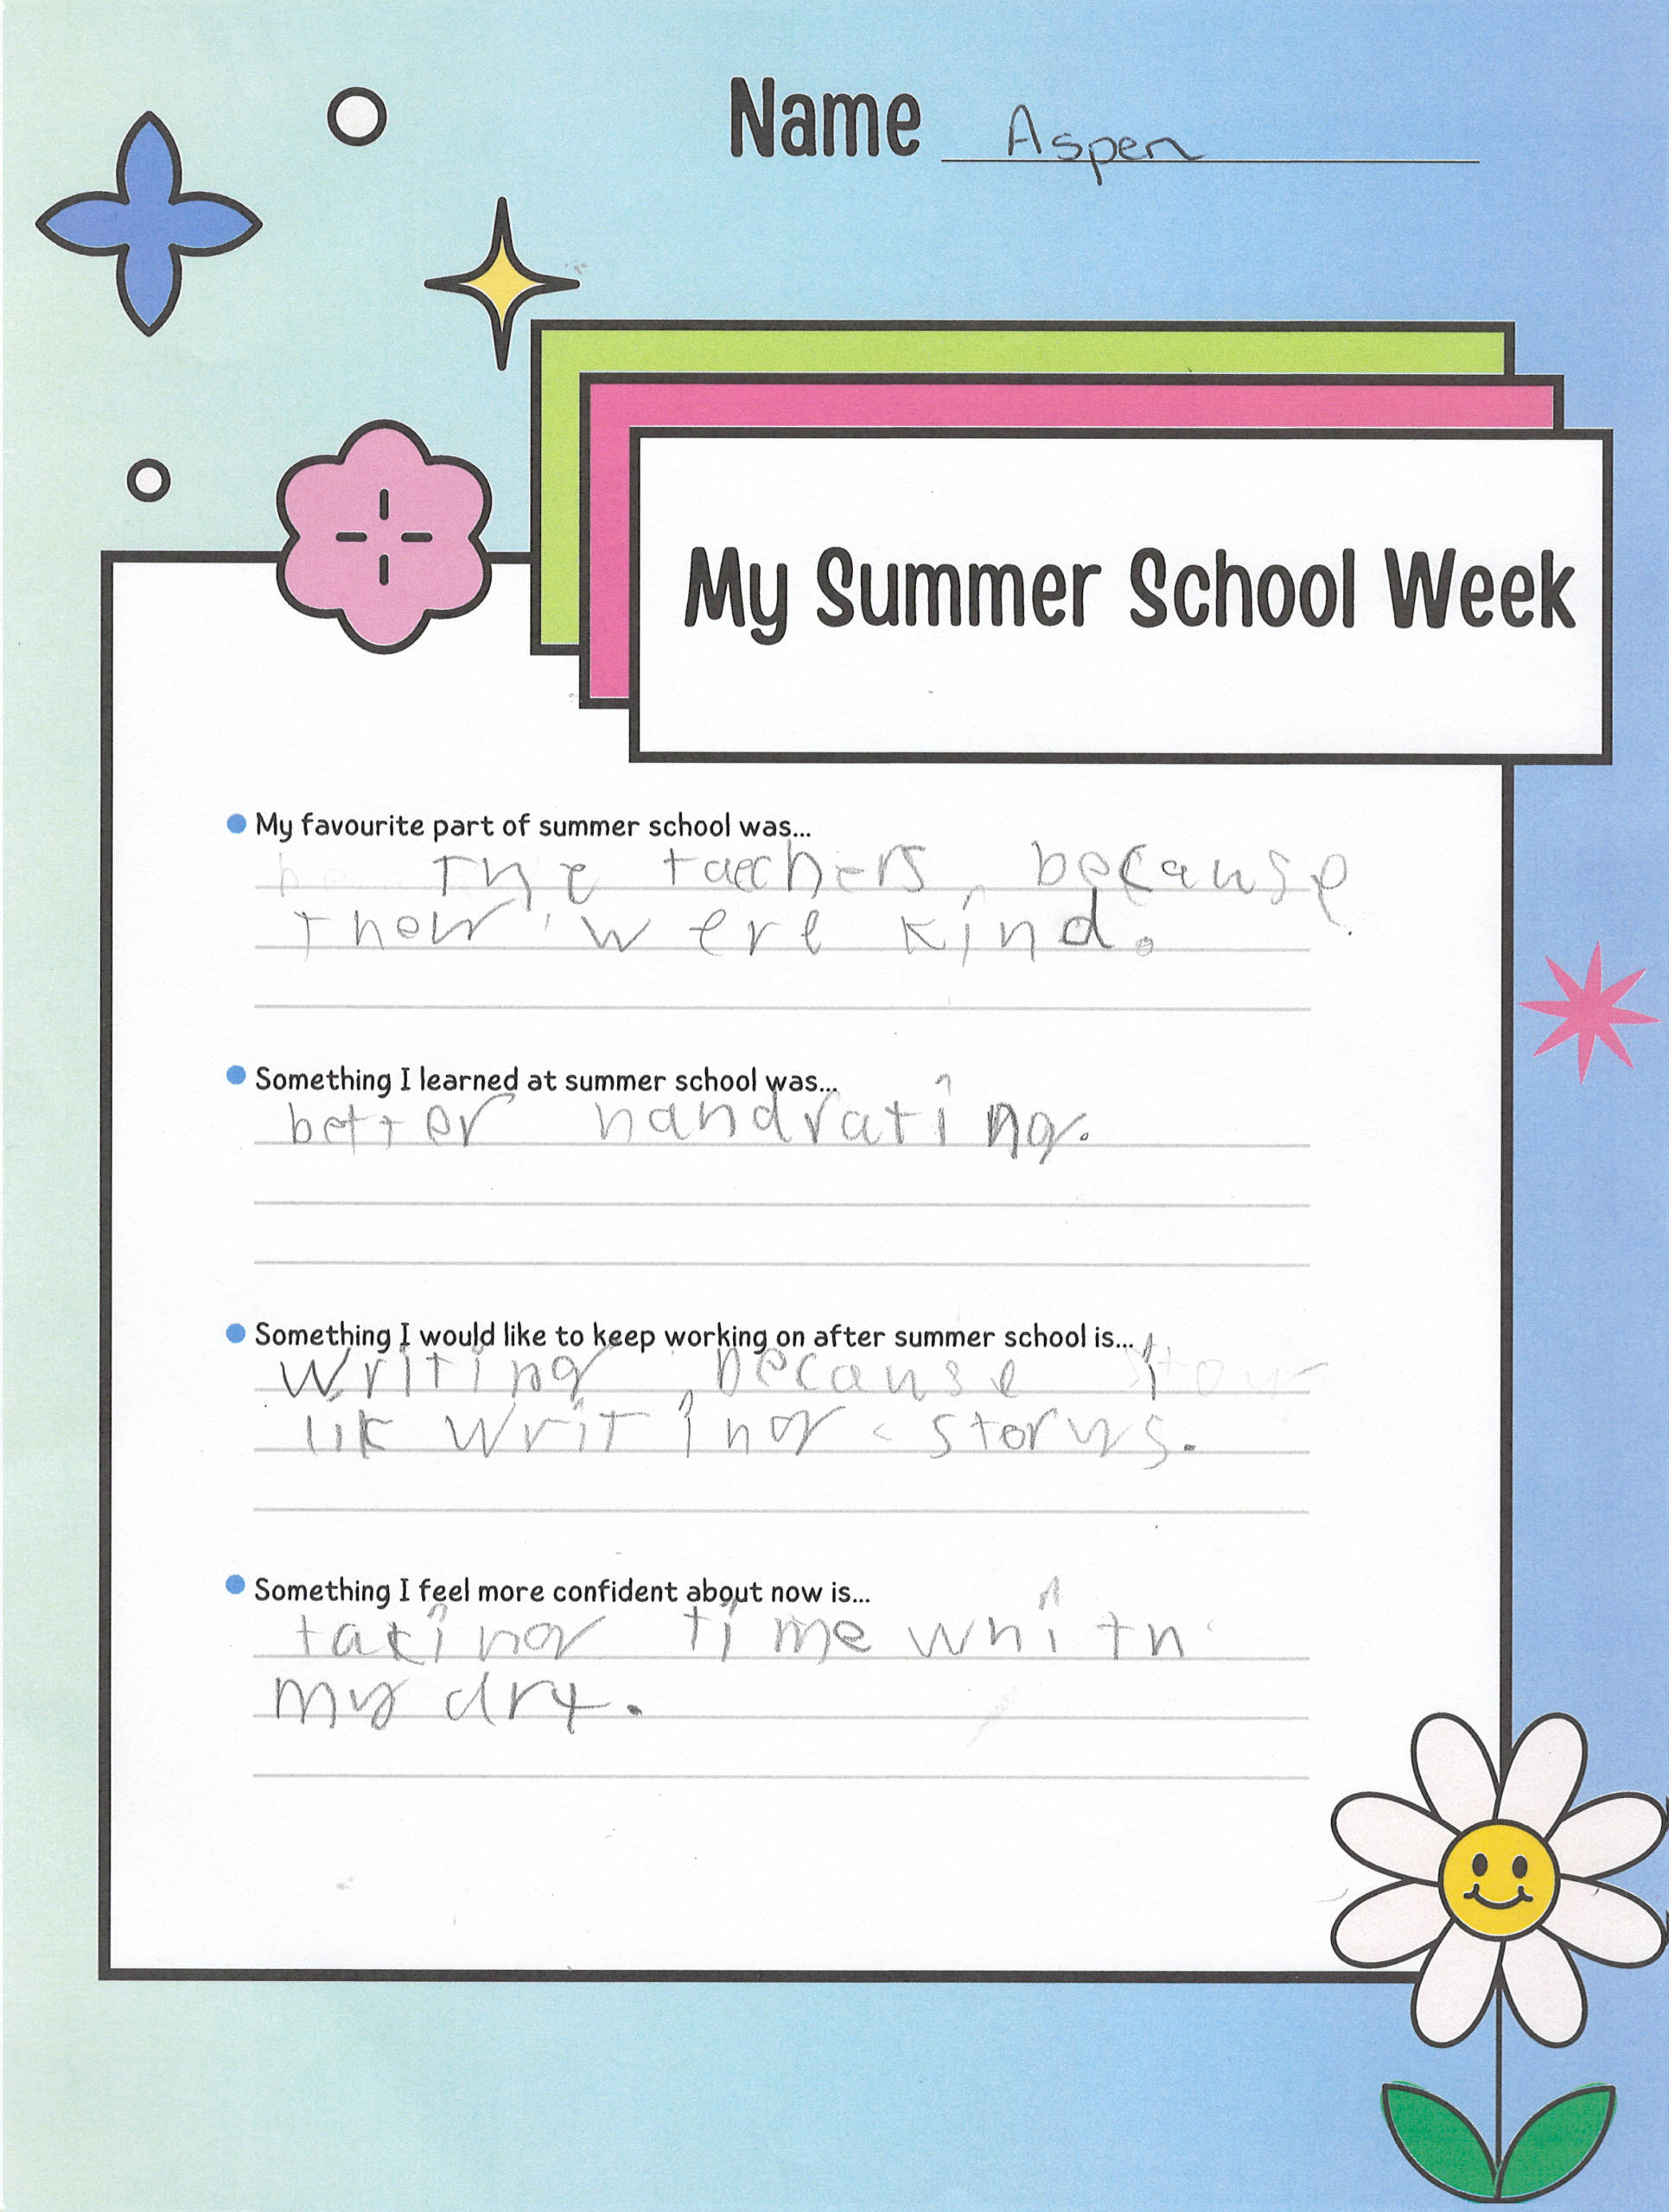 Name Aspen
My Summer School Week
My favourite part of summer school was...
The taechers, because
they were kind.
Something I learned at summer school was...
better handrating.
Something I would like to keep working on after summer school is...
writing because i
lik writing storys.
Something I feel more confident about now is...
taking time whith
my drt.